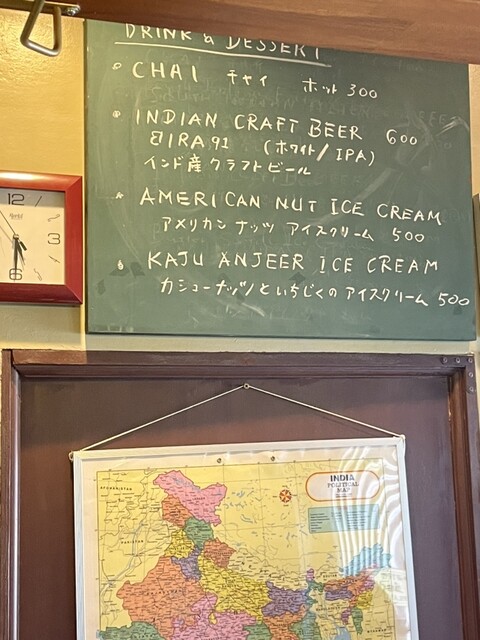 DRINK & DESSERT
CHAI チャイ ホット 300
INDIAN CRAFT BEER 600
BIRA 91 (ホワイト/IPA)
インド産クラフトビール
AMERICAN NUT ICE CREAM
アメリカンナッツ アイスクリーム 500
KAJU ANJEER ICE CREAM
カシューナッツといちじくのアイスクリーム 500
12
3
6
INDIA
POLITICAL
MAP
AFGHANISTAN
PAKISTAN